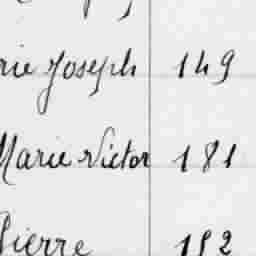 rie Joseph 149
Marie Victor 181
Pierre 192